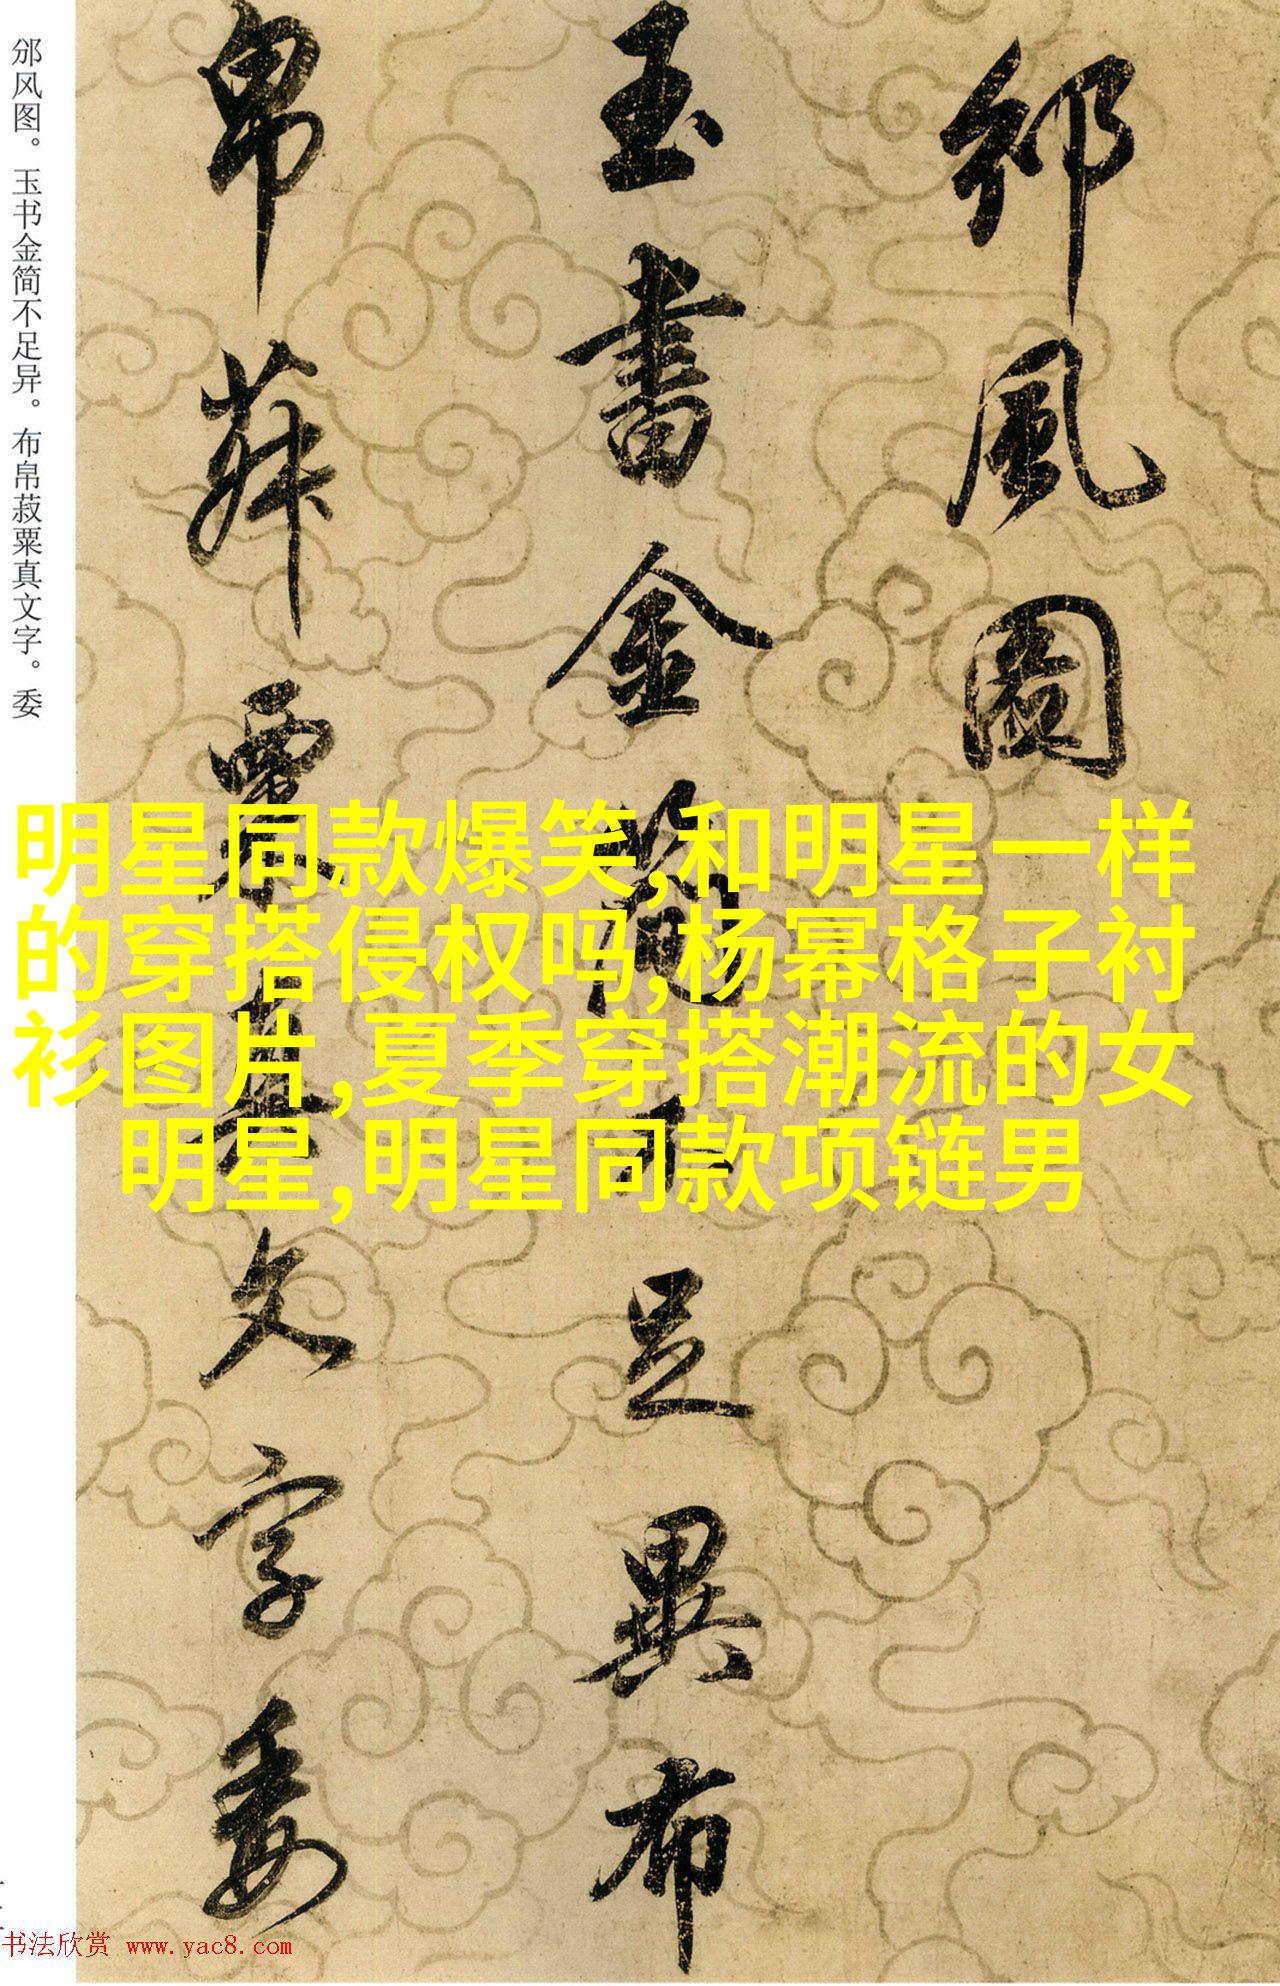 邠風圖
玉書金簡不足異布
帛菽粟真文字委
邠风图。玉书金简不足异。布帛菽粟真文字。委
明星同款爆笑,和明星一样
的穿搭侵权吗,杨幂格子衬
衫图片,夏季穿搭潮流的女
明星,明星同款项链男
书法欣赏 www.yac8.com